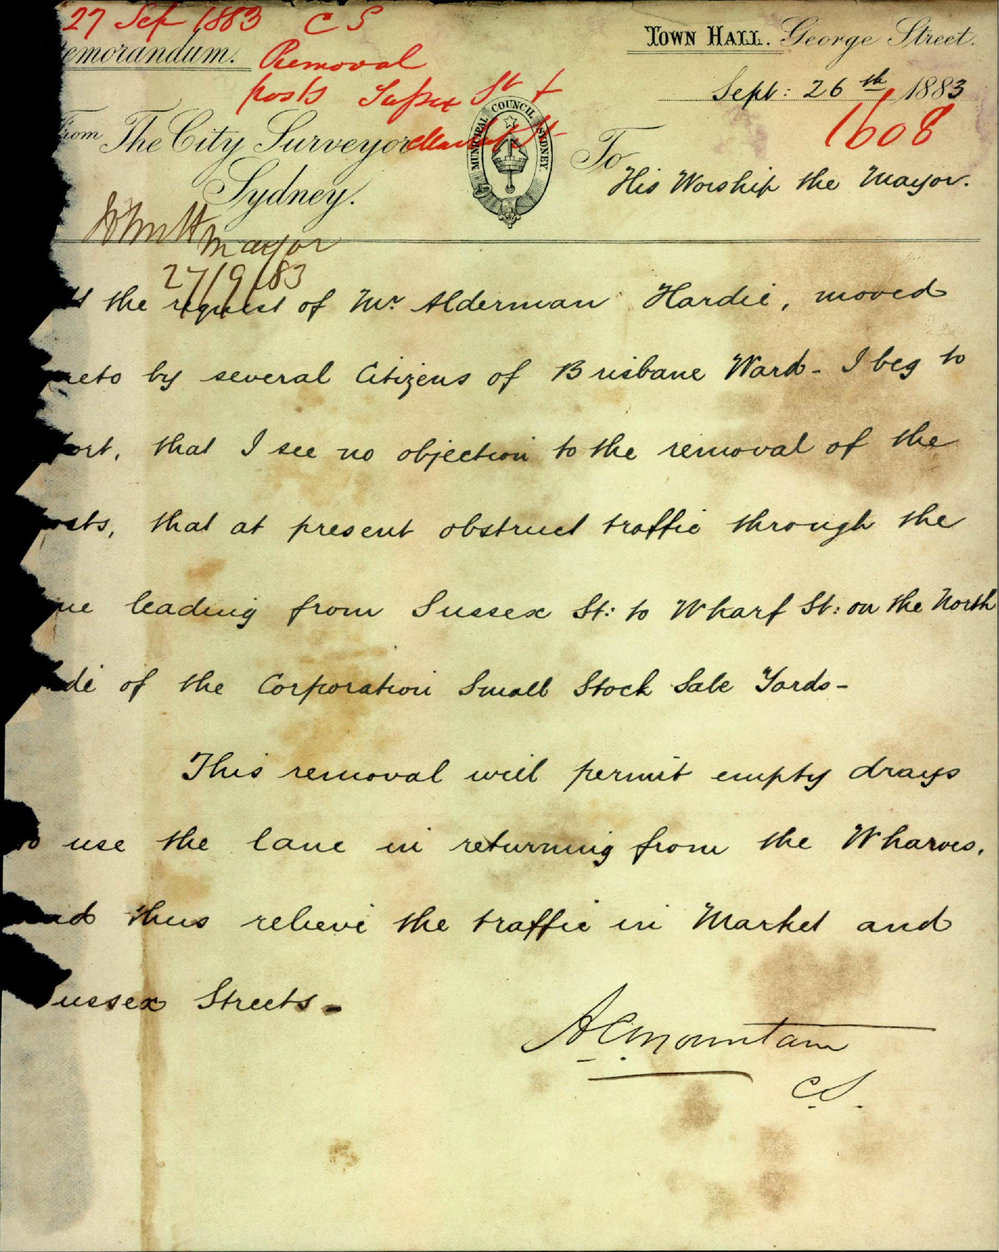 27 Sep 1883 C S
emorandum.
Removal
posts Sussex St &
Market St
TOWN HALL. George Street.
Sept: 26th 1883
1608
From The City Surveyor
Sydney.
MUNICIPAL COUNCIL SYDNEY.
To
His Worship the Mayor.
Mayor
27/9/83
t the request of Mr Alderman Hardie, moved
reto by several Citizens of Brisbane Ward - I beg to
ort, that I see no objection to the removal of the
osts, that at present obstruct traffic through the
ne leading from Sussex St: to Wharf St: on the North
de of the Corporation Small Stock Sale Yards -
This removal will permit empty drays
to use the lane in returning from the Wharves,
nd thus relieve the traffic in Market and
ussex Streets -
A C Mountain
C.S.